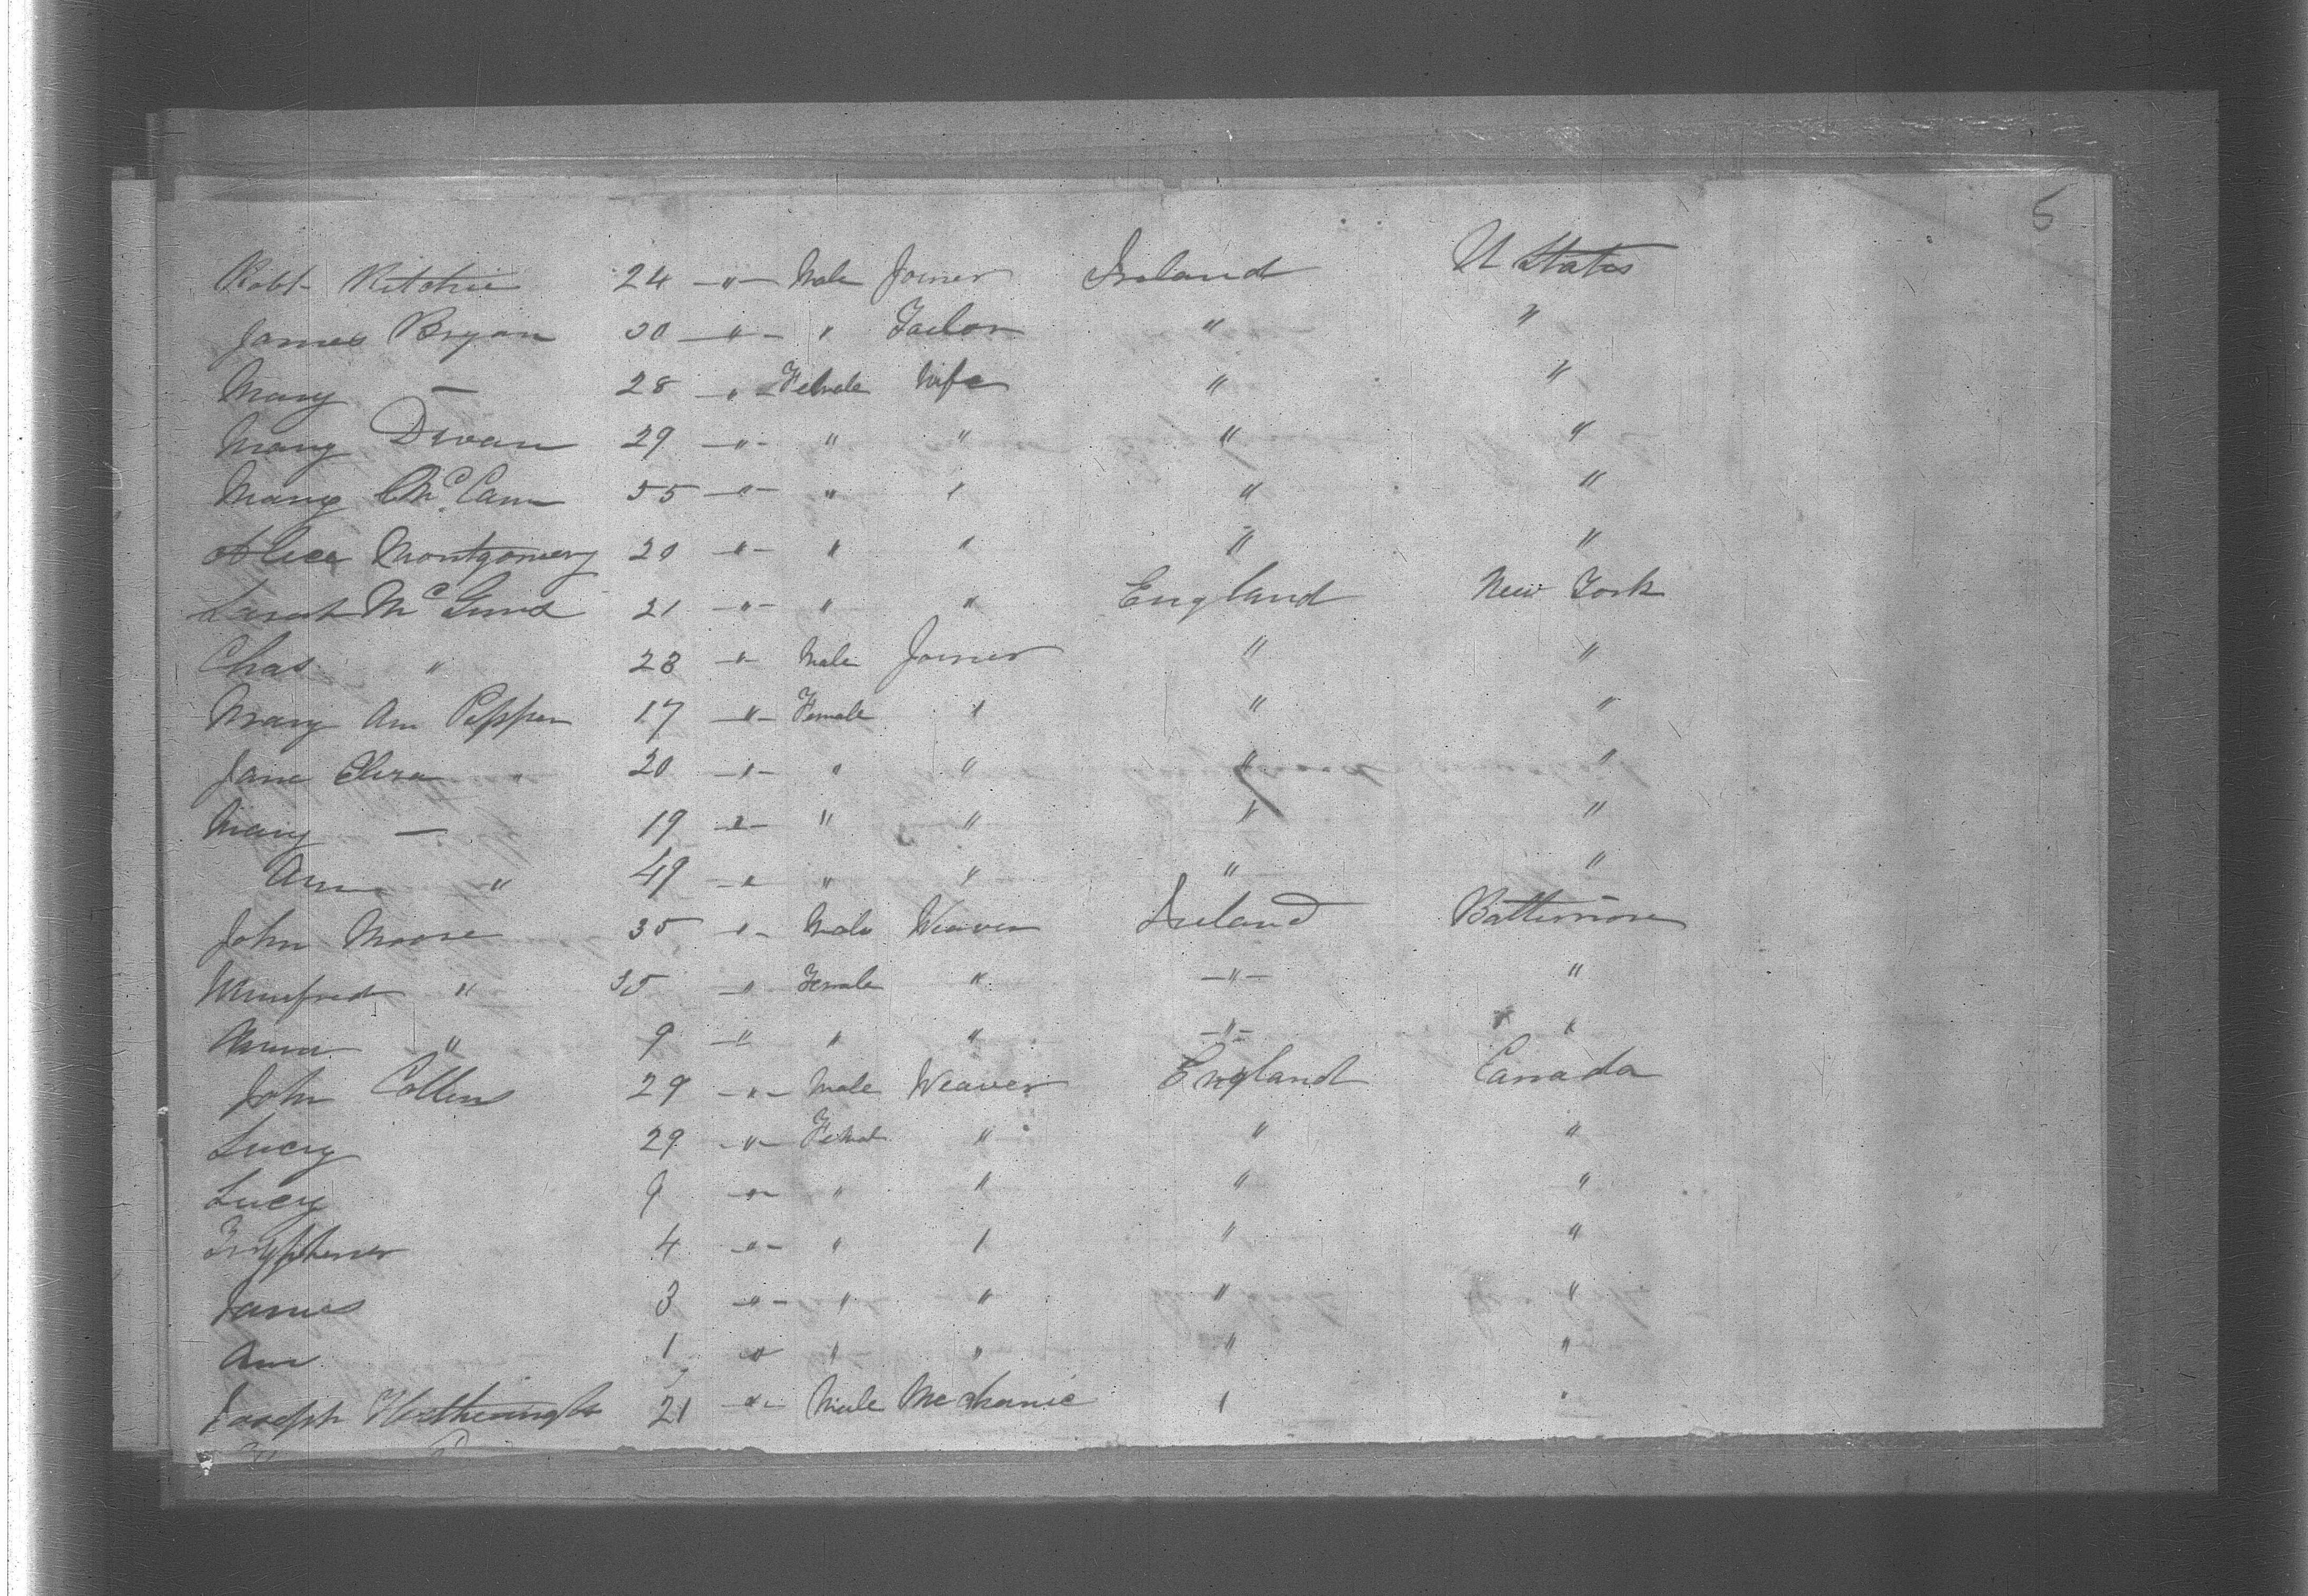 5
Robt Ritchie 24 — " — Male Joiner Ireland U States
James Bryan 30 — " — " Tailor " "
Mary — 28 — " — Female Wife " "
Mary Devan 29 — " — " " " "
Mary McCann 55 — " — " " " "
Alice Montgomery 20 — " — " " " "
Sarah 21 — " — " " England New York
Chas " 23 — " — Male Joiner " "
Mary Ann Pepper 17 — " — Female " " "
Jane Eliza " 20 — " — " " " "
Mary — 19 — " — " " " "
Ann " 49 — " — " " " "
John Moore 35 " — Male Weaver Ireland Baltimore
Winefred " 35 — " — Female " — " — "
" 9 — " — " " — " — "
John Collins 29 — " — Male Weaver England Canada
Lucy 29 — " — Femal " " "
Lucy 9 — " — " " " "
4 — " — " " " "
James 3 — " — " " " "
Ann 1 — " " " " "
Joseph Hetherington 21 — " — Male Mechanic " "